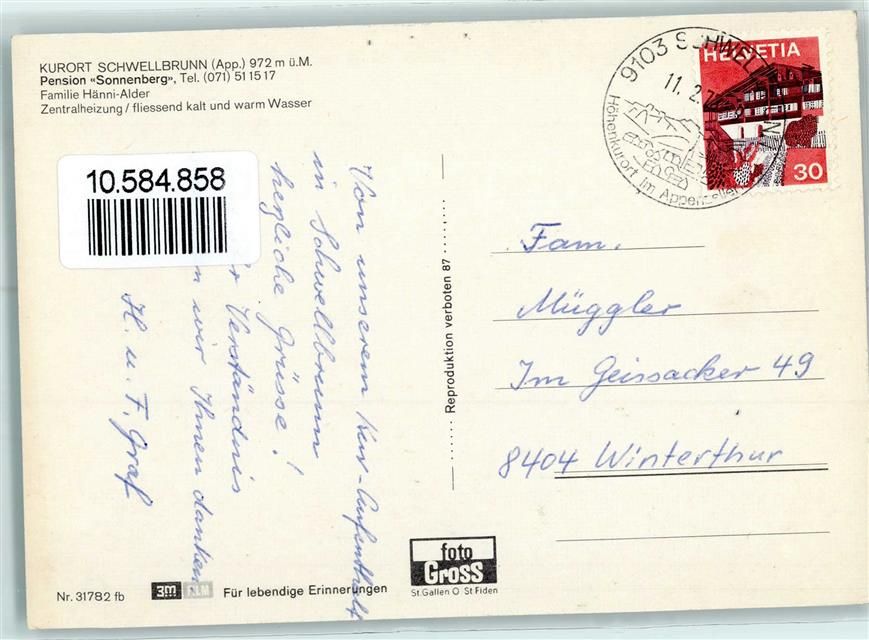 KURORT SCHWELLBRUNN (App.) 972 m ü.M.
Pension «Sonnenberg», Tel. (071) 51 15 17
Familie Hänni-Alder
Zentralheizung / fliessend kalt und warm Wasser
10.584.858
Von unserem Kur-Aufenthalt
in Schwellbrunn
herzliche Grüsse!
Verständnis
wir Ihnen danken
H. u. F. Graf
Reproduktion verboten 87
9103 SCHWELLBRUNN
11. 2. 7
Höhenkurort im Appenzeller
HELVETIA
30
Fam.
Müggler
Im Geissacker 49
8404 Winterthur
Nr. 31782 fb
3M FILM
Für lebendige Erinnerungen
foto
Gross
St.Gallen O St Fiden